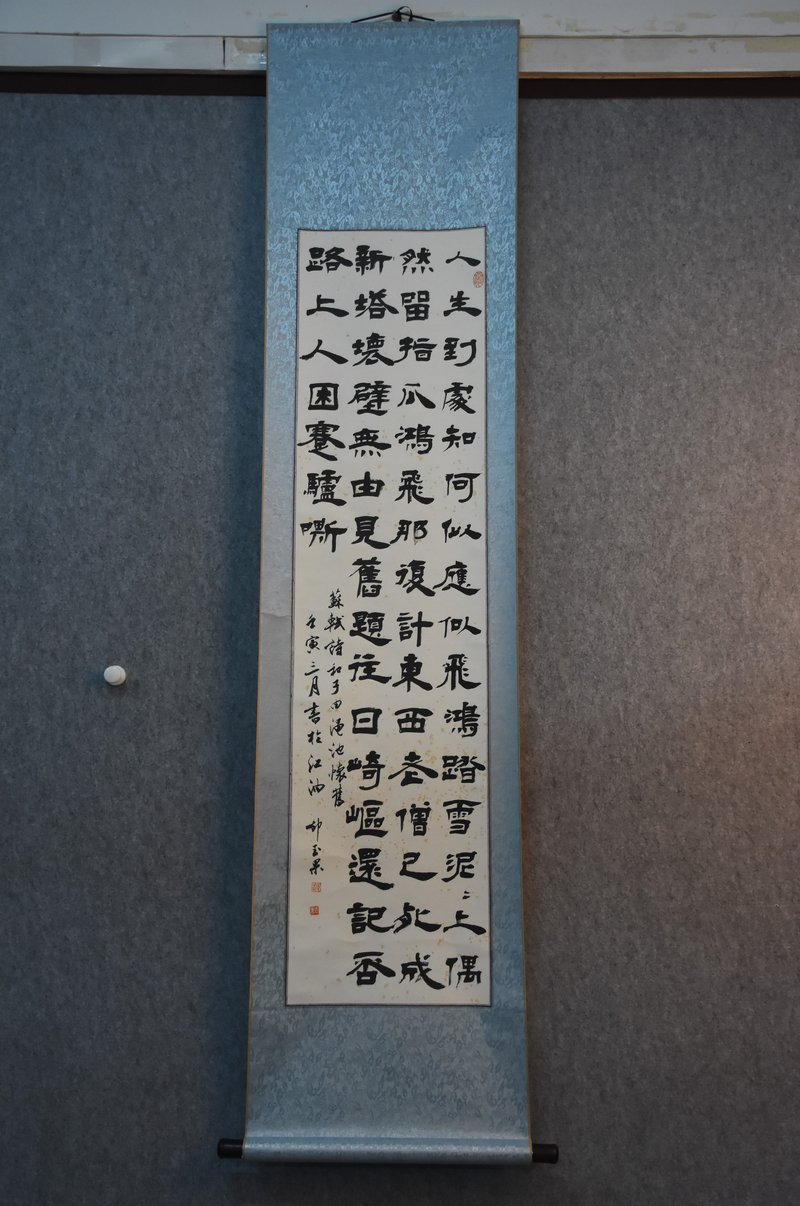 人生到處知何似應似飛鴻踏雪泥〻上偶
然留指爪鴻飛那復計東西老僧已死成
新塔壞壁無由見舊題往日崎嶇還記否
路上人困蹇驢嘶
蘇軾詩和子由澠池懷舊
壬寅三月書於江油